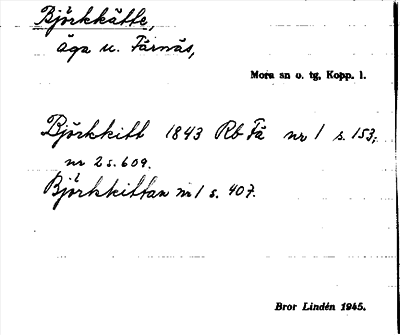 Björkkätte,
äga u. Färnäs,
Mora sn o. tg, Kopp. l.
Björkkitt 1843 Rb Fä nr 1 s. 153;
nr 2 s. 609.
Björkkittan nr 1 s. 407.
Bror Lindén 1945.